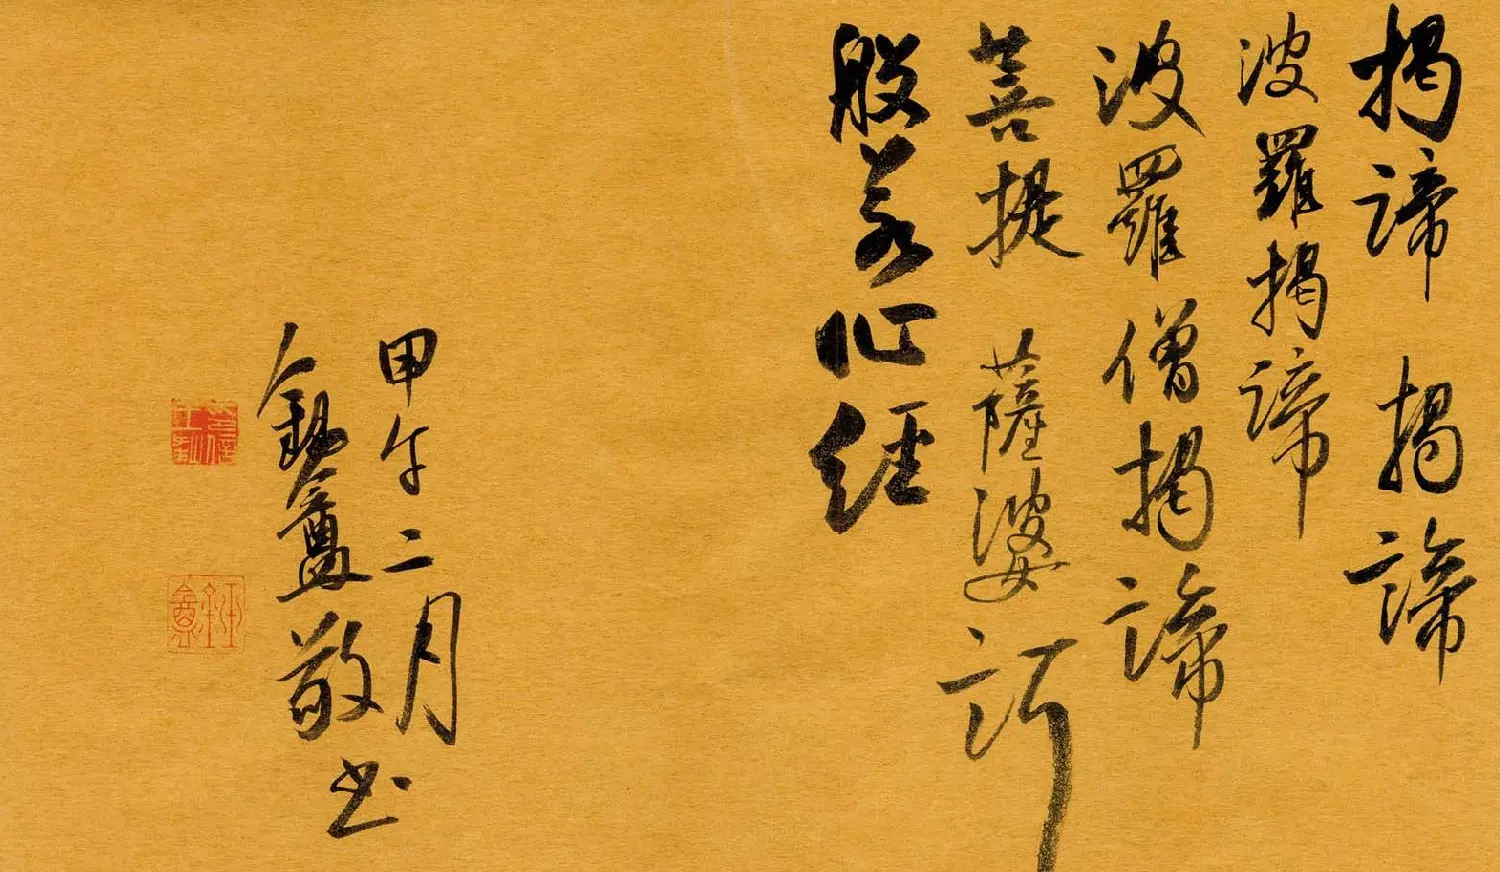 揭諦 揭諦
波羅揭諦
波羅僧揭諦
菩提 薩婆訶
般若心經
甲午二月
敬書